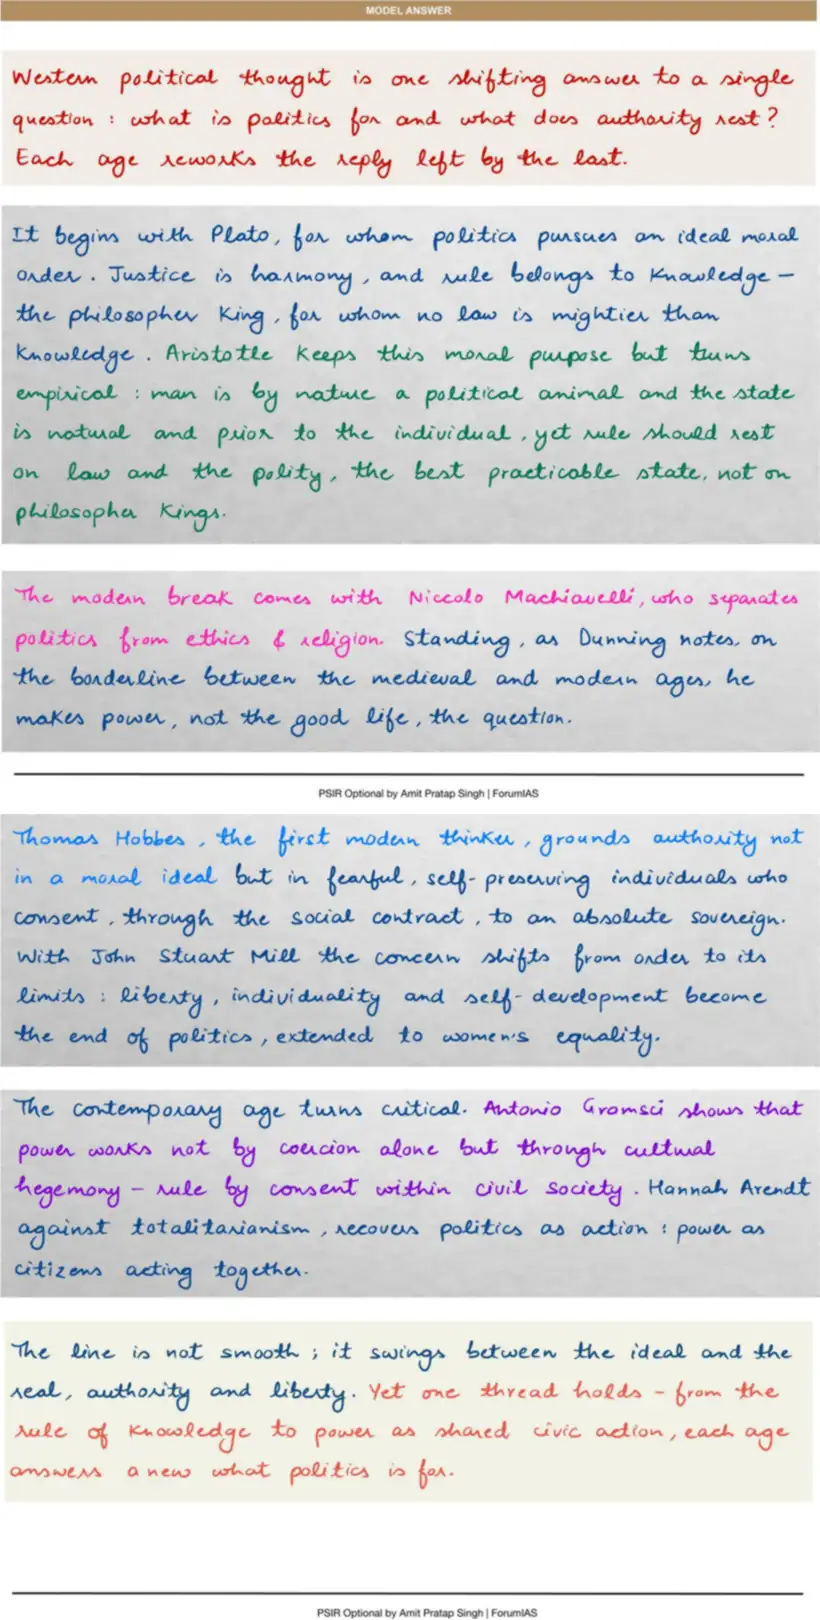 MODEL ANSWER
Western political thought is one shifting answer to a single
question : what is politics for and what does authority rest?
Each age reworks the reply left by the last.
It begins with Plato, for whom politics pursues an ideal moral
order. Justice is harmony, and rule belongs to Knowledge –
the philosopher King, for whom no law is mightier than
Knowledge. Aristotle Keeps this moral purpose but turns
empirical : man is by nature a political animal and the state
is natural and prior to the individual, yet rule should rest
on law and the polity, the best practicable state, not on
philosopher Kings.
The modern break comes with Niccolo Machiavelli, who separates
politics from ethics & religion. Standing, as Dunning notes, on
the borderline between the medieval and modern ages, he
makes power, not the good life, the question.
PSIR Optional by Amit Pratap Singh | ForumIAS
Thomas Hobbes, the first modern thinker, grounds authority not
in a moral ideal but in fearful, self-preserving individuals who
consent, through the social contract, to an absolute sovereign.
With John Stuart Mill the concern shifts from order to its
limits : liberty, individuality and self-development become
the end of politics, extended to women's equality.
The contemporary age turns critical. Antonio Gramsci shows that
power works not by coercion alone but through cultural
hegemony – rule by consent within civil society. Hannah Arendt
against totalitarianism, recovers politics as action : power as
citizens acting together.
The line is not smooth ; it swings between the ideal and the
real, authority and liberty. Yet one thread holds – from the
rule of Knowledge to power as shared civic action, each age
answers a new what politics is for.
PSIR Optional by Amit Pratap Singh | ForumIAS